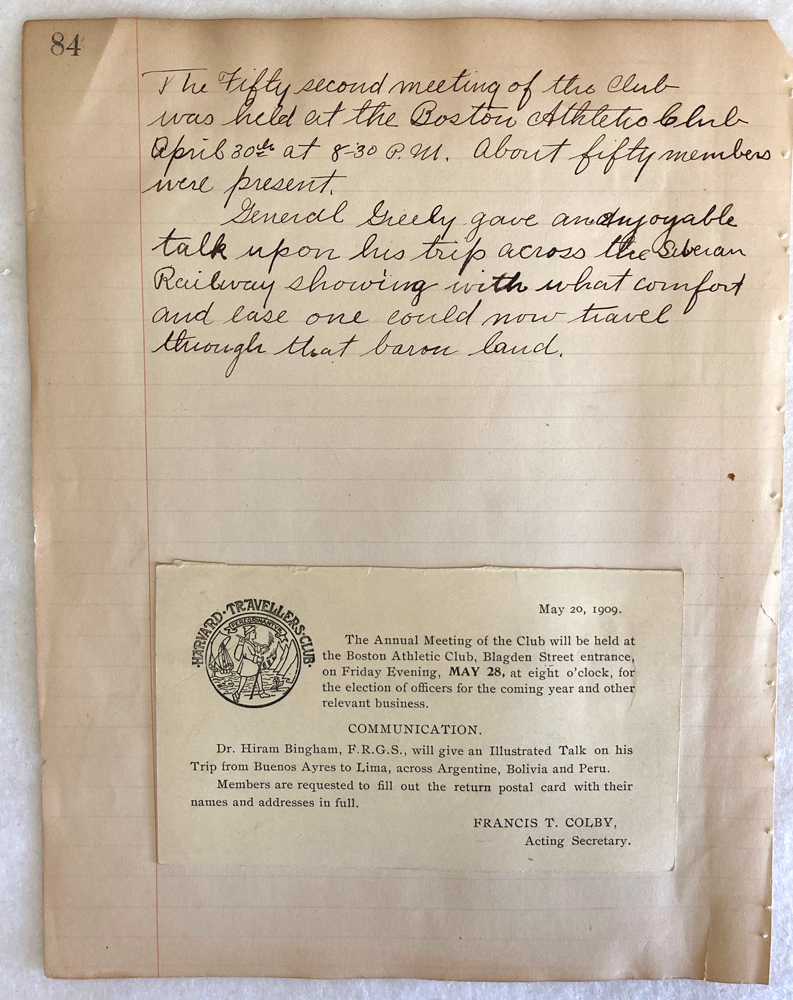 84
The Fifty second meeting of the Club
was held at the Boston Athletic Club
April 30th at 8-30 P.M. About fifty members
were present.
General Greely gave an enjoyable
talk upon his trip across the Siberian
Railway showing with what comfort
and ease one could now travel
through that baron land.
HARVARD · TRAVELLERS · CLUB ·
PEREGRINANTUR
May 20, 1909.
The Annual Meeting of the Club will be held at
the Boston Athletic Club, Blagden Street entrance,
on Friday Evening, MAY 28, at eight o'clock, for
the election of officers for the coming year and other
relevant business.
COMMUNICATION.
Dr. Hiram Bingham, F.R.G.S., will give an Illustrated Talk on his
Trip from Buenos Ayres to Lima, across Argentine, Bolivia and Peru.
Members are requested to fill out the return postal card with their
names and addresses in full.
FRANCIS T. COLBY,
Acting Secretary.